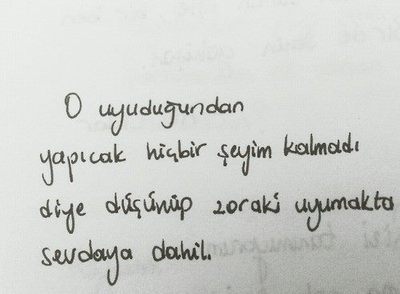 O uyuduğundan
yapıcak hiçbir şeyim kalmadı
diye düşünüp zoraki uyumakta
sevdaya dahil.